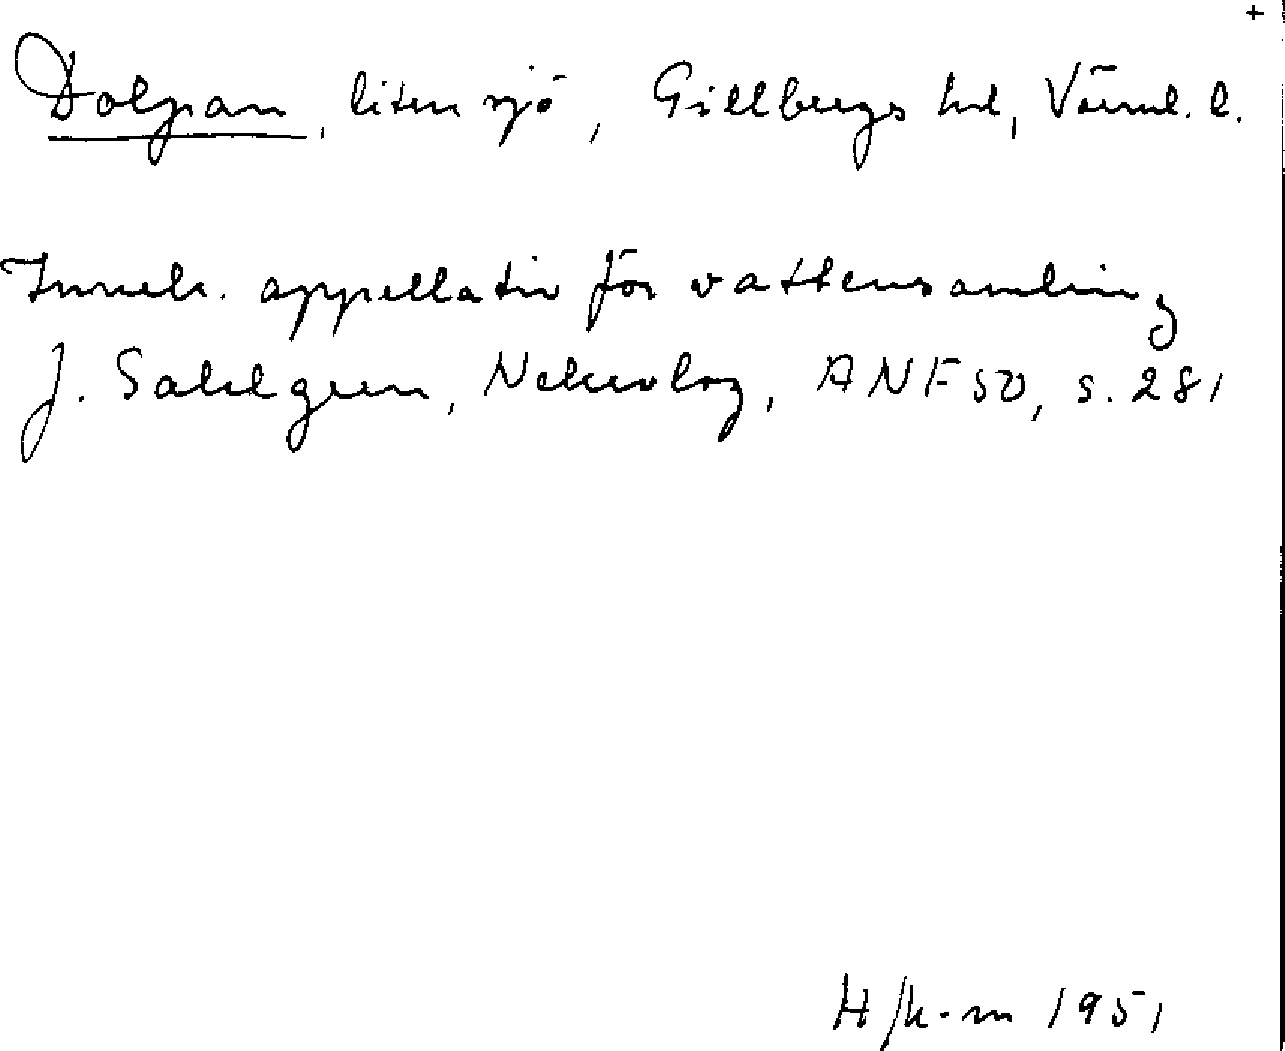 +
Dolpan, liten sjö, Gillbergs hd, Värml. l.
Inneh. appellativ för vattensamling
J. Sahlgren, Nekrolog, ANF 50, s. 281
1951